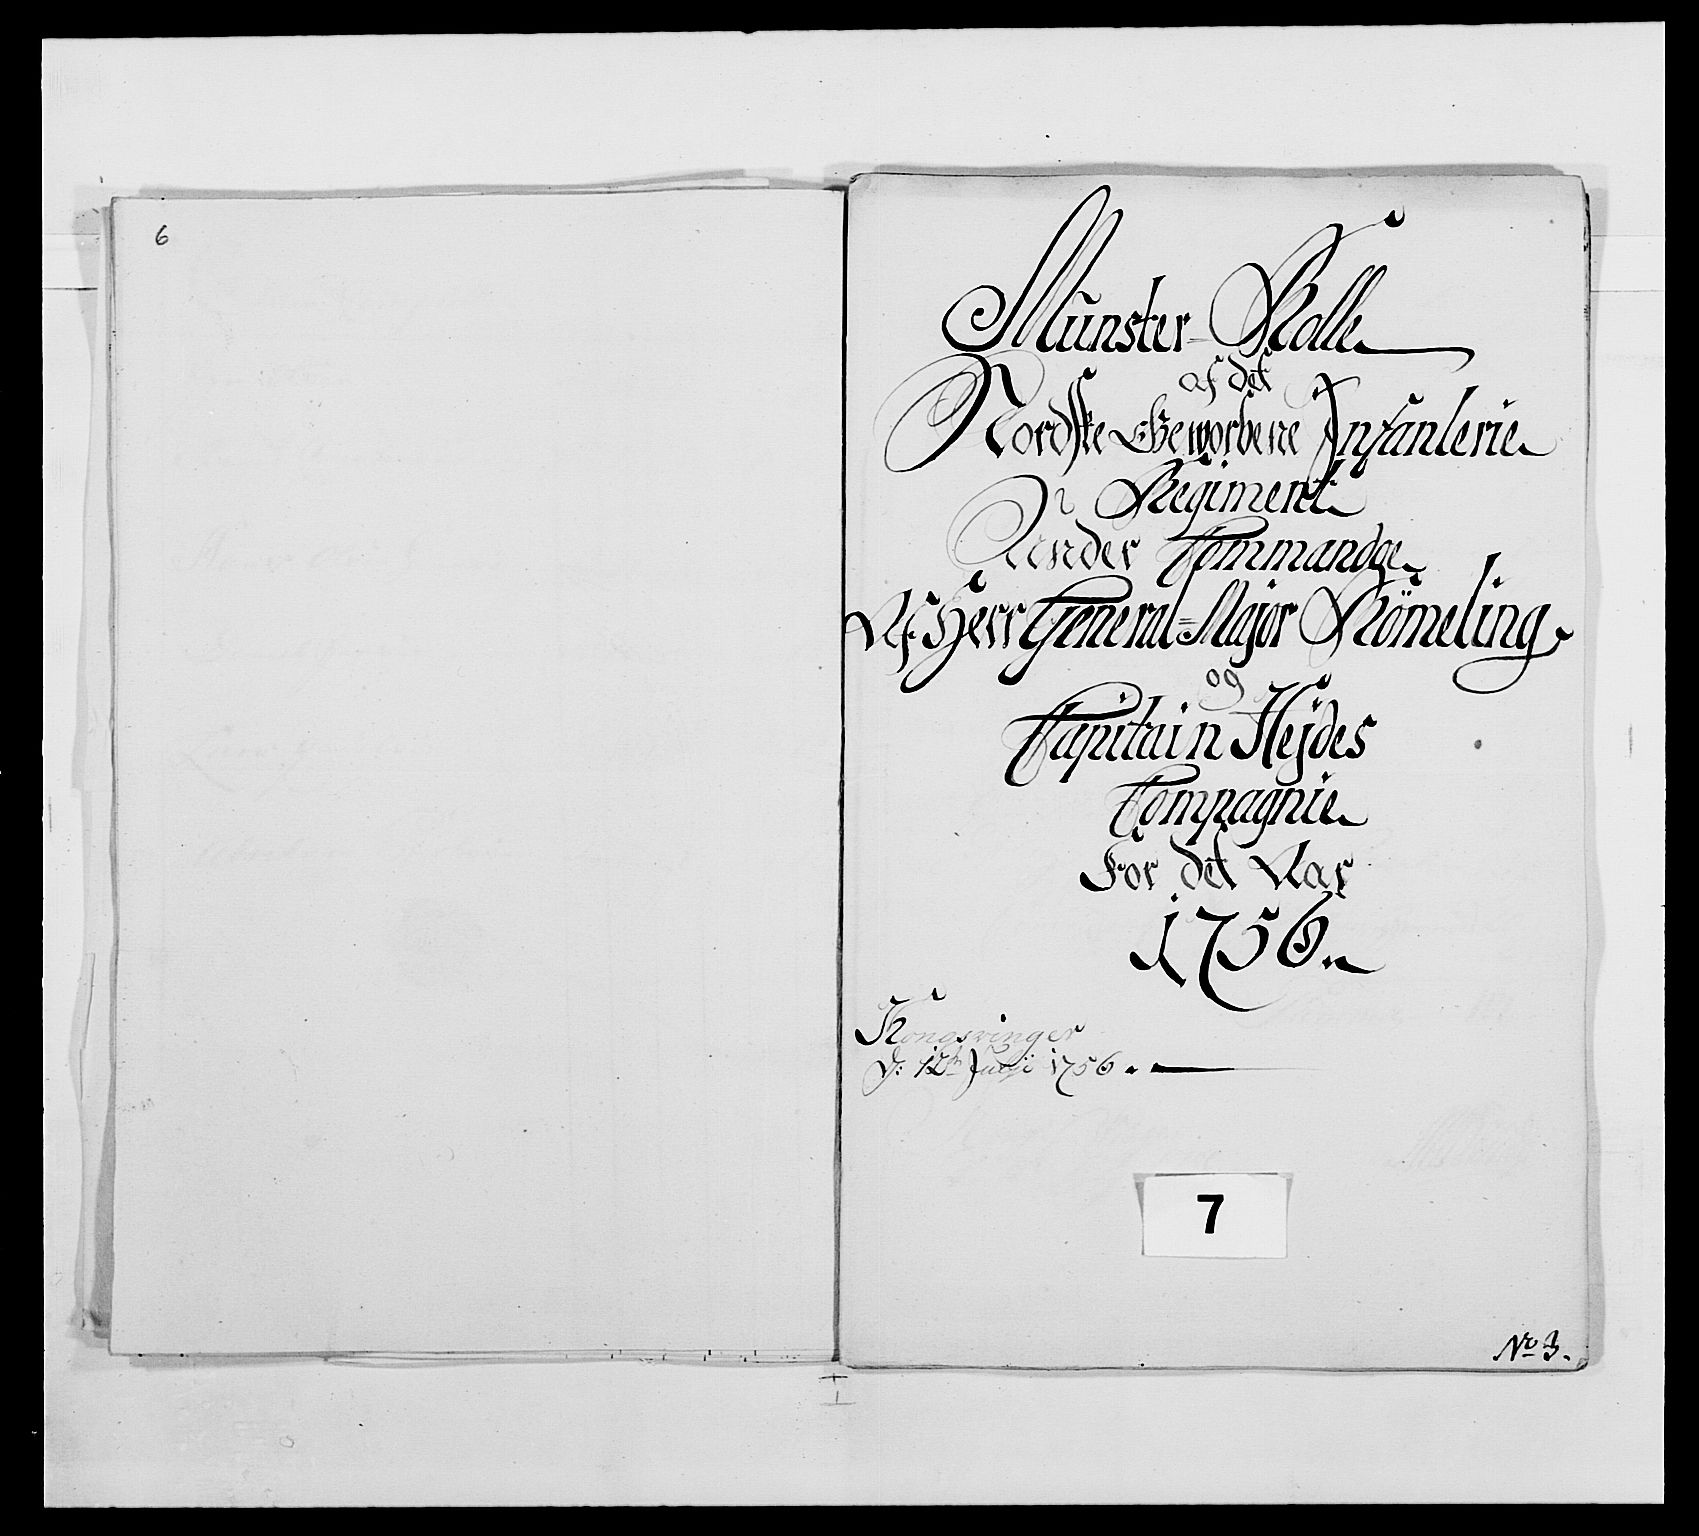 6
Munster-Rolle
af det
Nordske Geworbene Infanterie
Regiment
Under Commandoe
Af Herr General=Major Römeling
og
Capitain Hejdes
Compagnie
For det Aar
1756.
Kongsvinger
D: 12te Julii 1756.
7
No 3.